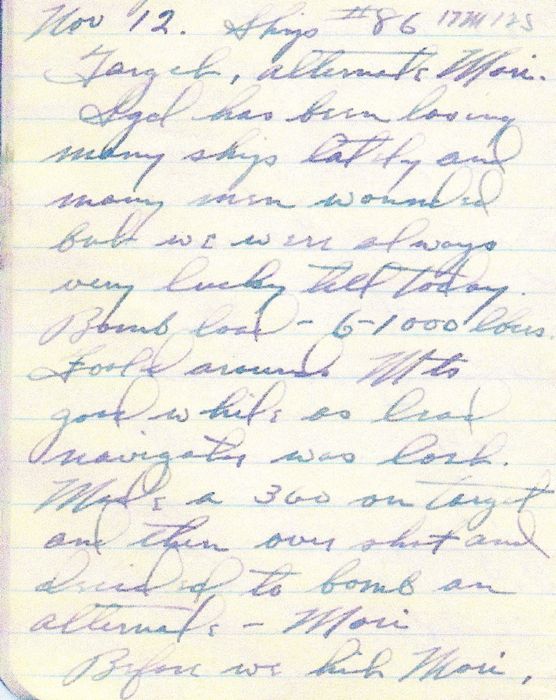 Nov 12. Ship #86
Target, alternate Mori.
Sqd has been losing
many ships lately and
many men wounded
but we were always
very lucky till today.
Bomb load - 6-1000 lbers.
Foold around Mts
good while as lead
navigator was lost.
Made a 360 on target
and then over shot and
decided to bomb an
alternate - Mori
Before we hit Mori,